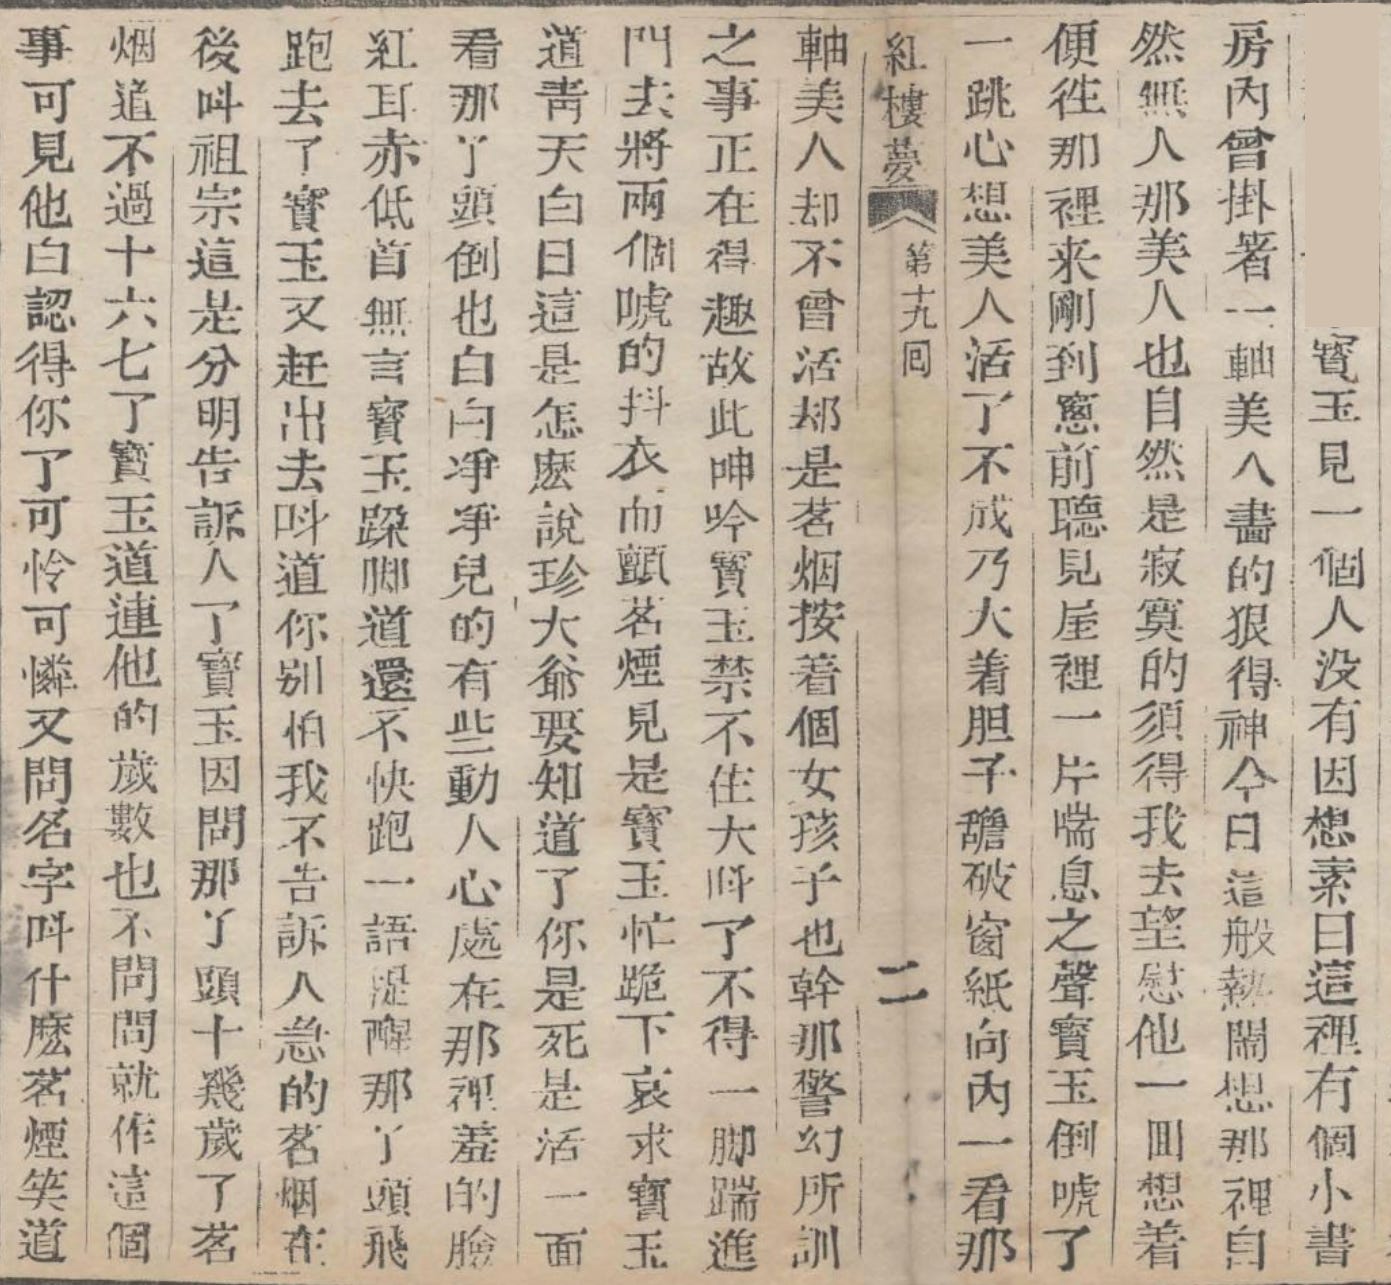 寳玉見一個人没有因想素日這裡有個小書
房內曾掛着一軸美人畵的狠得神今日這般熱閙想那裡自
然無人那美人也自然是寂寞的須得我去望慰他一囬想着
便徃那裡来剛到窻前聽見屋裡一片喘息之聲寳玉倒唬了
一跳心想美人活了不成乃大着胆子䑛破窗紙向內一看那
紅樓夢 第十九囘 二
軸美人却不曾活却是茗烟按着個女孩子也幹那警幻所訓
之事正在得趣故此呻吟寳玉禁不住大呌了不得一脚踹進
門去將兩個唬的抖衣而顫茗煙見是寳玉忙跪下哀求寳玉
道靑天白日這是怎麽說珍大爺要知道了你是死是活一面
看那丫頭倒也白白凈凈兒的有些動人心處在那裡羞的臉
紅耳赤低首無言寳玉跺脚道還不快跑一語提醒那丫頭飛
跑去了寳玉又赶出去呌道你别怕我不告訴人急的茗烟在
後呌祖宗這是分明告訴人了寳玉因問那丫頭十幾歲了茗
烟道不過十六七了寳玉道連他的歲數也不問問就作這個
事可見他白認得你了可怜可憐又問名字呌什麽茗煙笑道